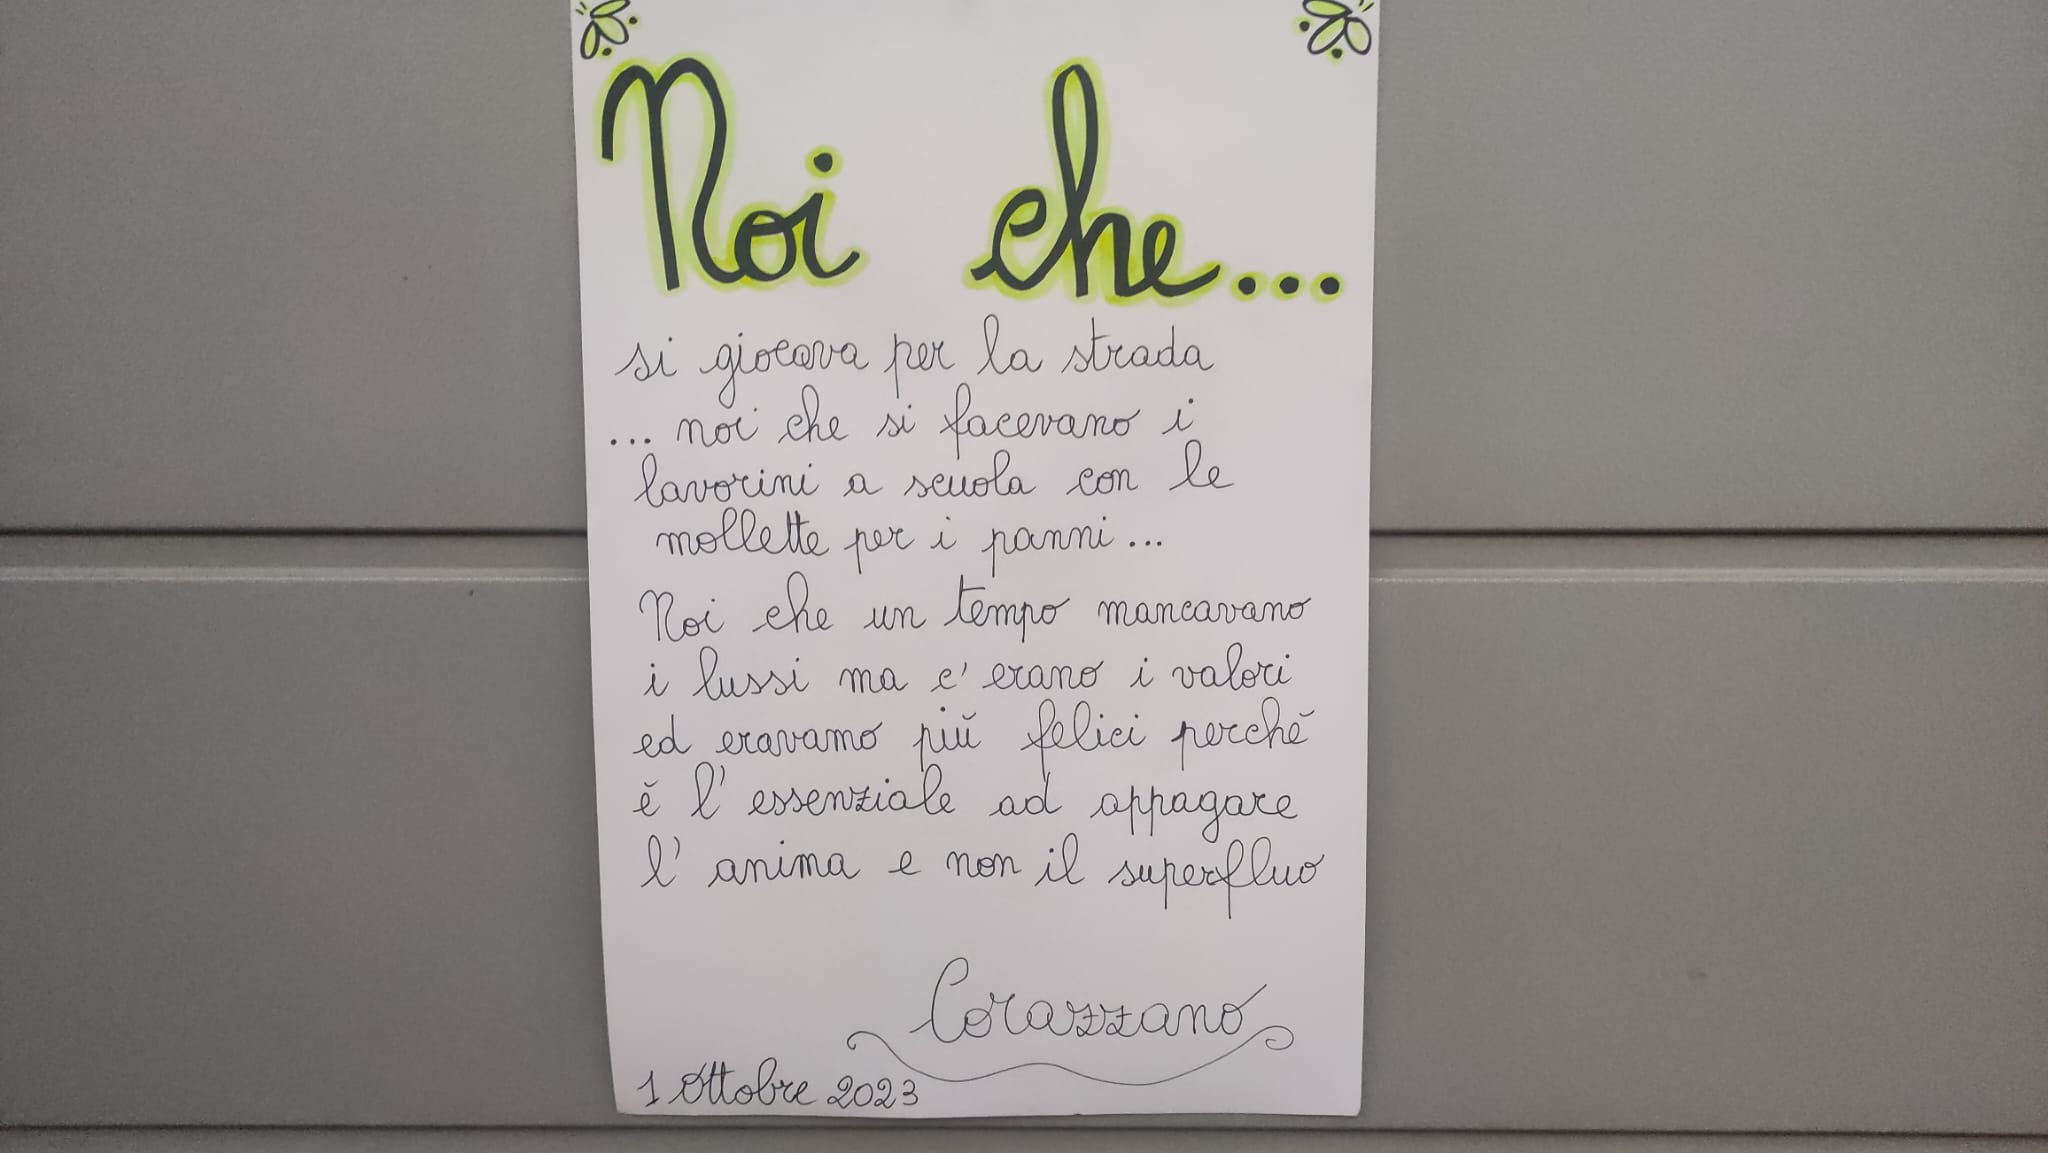 Noi che...
si giocava per la strada
... noi che si facevano i
lavorini a scuola con le
mollette per i panni...
Noi che un tempo mancavano
i lussi ma c'erano i valori
ed eravamo più felici perchè
è l'essenziale ad appagare
l'anima e non il superfluo
Corazzano
1 Ottobre 2023